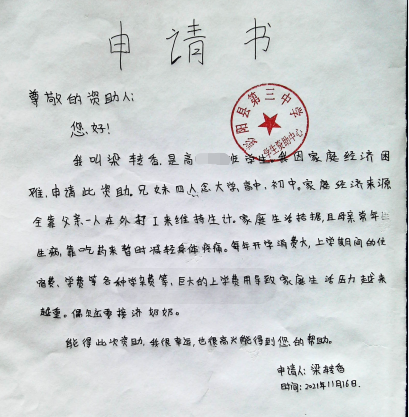 申请书
尊敬的资助人:
您好!
县第三中学
学生资助中心
我叫梁转香,是高 班学生,我因家庭经济困
难,申请此资助。兄妹四人念大学、高中、初中。家庭经济来源
全靠父亲一人在外打工来维持生计。家庭生活拮据,且母亲常年
生病,靠吃药来暂时减轻身体疼痛。每年开学消费大,上学期间的住
宿费、学费等各种学杂费等,巨大的上学费用导致家庭生活压力越来
越重。偶尔还要接济奶奶。
能得此次资助,我很幸运,也很高兴能得到您的帮助。
申请人:梁转香
时间:2021年11月16日.